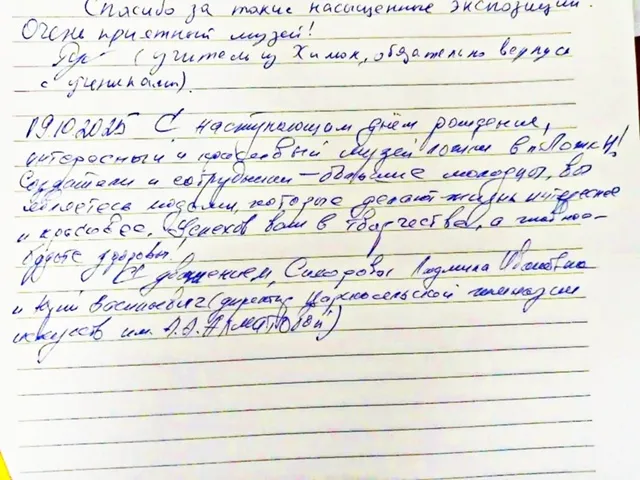 Спасибо за такие насыщенные экспозиции.
Очень приятный музей!
(учитель из Химок, обязательно вернусь
с учениками).
19.10.2025 С наступающим днём рождения,
интересный и красивый музей ложки в п. Ложки!
Создатели и сотрудники – большие молодцы, вы
являетесь людьми, которые делают жизнь интереснее
и красивее. Успехов вам в творчестве, а главное –
будьте здоровы.
С уважением, Сидоровы Людмила Ивановна
и Юрий Васильевич (директор Царскосельской гимназии
искусств им. А.А. Ахматовой)